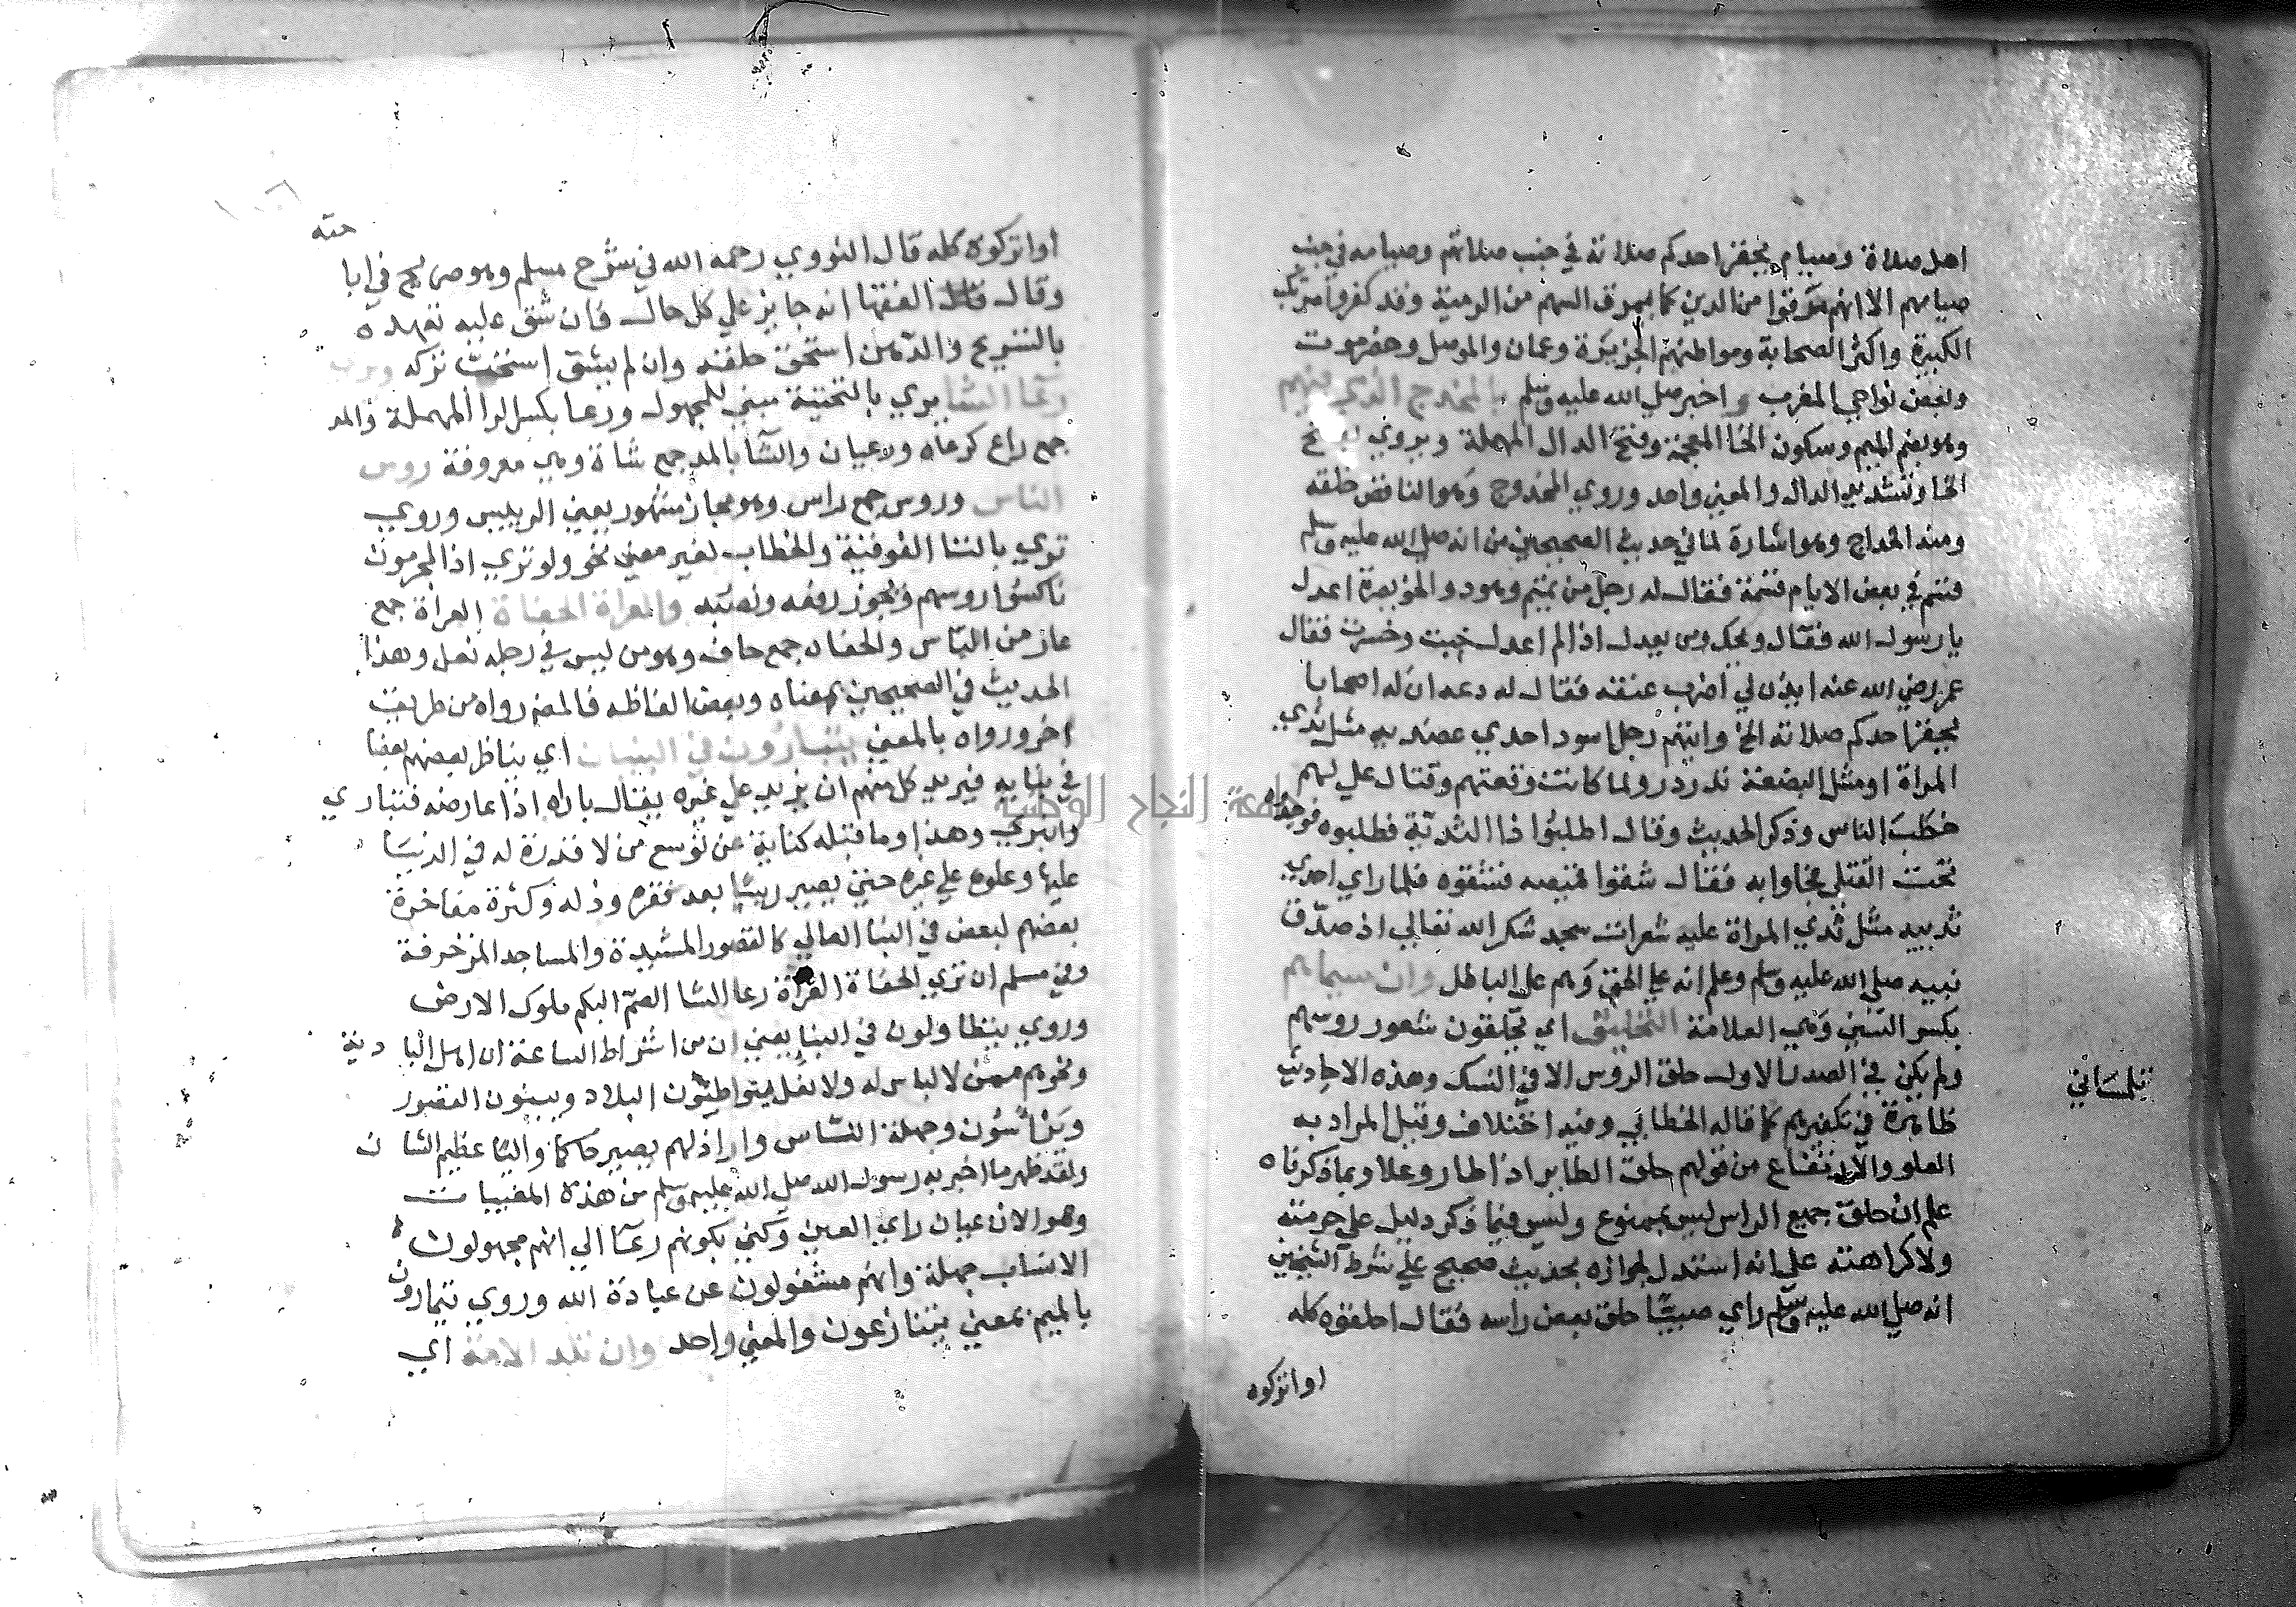 اهل صلاة وصيام يحقر احدكم صلاته في جنب صلاتهم وصيامه في جنب
صيامهم الا انهم مرقوا من الدين كما يمرق السهم من الرمية وقد كفروا مرتكب
الكبيرة واكثر الصحابة ومواطنهم الجزيرة وعمان والموصل وحضرموت
وبعض نواحي المغرب واخبر صلي الله عليه وسلم بالمخدج الذي منهم
وهو بضم الميم وسكون الخا المعجمة وفتح الدال المهملة ويروي بفتح
الخا وتشديد الدال والمعني واحد وروي المخدوج وهو الناقص خلقه
ومنه الخداج وهو اشارة لما في حديث الصحيحين من انه صلي الله عليه وسلم
قسم في بعض الايام قسمة فقال له رجل من تميم وهو ذو الخويصرة اعدل
يا رسول الله فقال ويحك ومن يعدل اذا لم اعدل خبت وخسرت فقال
عمر رضي الله عنه ايذن لي اضرب عنقه فقال له دعه ان له اصحابا
يحقر احدكم صلاته الخ وايتهم رجل اسود احدي عضديه مثل ثدي
المراة او مثل البضعة تدردر ولما كانت وقعتهم وقتال علي لهم
خطب الناس وذكر الحديث وقال اطلبوا ذا الثدية فطلبوه فوجدوه
تحت القتلي فجاوا به فقال شقوا قميصه فشقوه فلما راي احدي
ثدييه مثل ثدي المراة عليه شعرات سجد شكرا لله تعالي اذ صدق
نبيه صلي الله عليه وسلم وعلم انه علي الحق وهم علي الباطل وان سيماهم
بكسر السين وهي العلامة التحليق اي يحلقون شعور روسهم
ولم يكن في الصدر الاول حلق الروس الا في النسك وهذه الاحاديث
تلمساني
ظاهرة في تكفيرهم كما قاله الخطابي وفيه اختلاف وقيل المراد به
العلو والارتفاع من قولهم حلق الطاير اذا طار وعلا وبما ذكرناه
علم ان حلق جميع الراس ليس بممنوع وليس فيما ذكر دليل علي حرمته
ولا كراهته علي انه استدل لجوازه بحديث صحيح علي شرط الشيخين
انه صلي الله عليه وسلم راي صبيا حلق بعض راسه فقال احلقوه كله
او اتركوه
او اتركوه كله قال النووي رحمه الله في شرح مسلم وهو صريح في ابا
حته
وقال الفقها انه جايز علي كل حال فان شق عليه تعهده
بالتسريح والدهن استحق حلقه وان لم يشق استحب تركه
رعا الشا يري بالتحتية مبني للمجهول ورعا بكسر الرا المهملة والمد
جمع راع كرعاه ورعيان والشا بالمد جمع شاة وهي معروفة روس
الناس وروس جمع راس وهو مجاز مشهور بمعني الرييس وروي
تري بالتا الفوقية والخطاب لغير معين نحو ولو تري اذ المجرمون
ناكسوا روسهم ويجوز رفعه ونصبه والعراة الحفاة العراة جمع
عار من الباس والحفاه جمع حاف وهو من ليس في رجله نعل وهذا
الحديث في الصحيحين بمعناه وبعض الفاظه فالمص رواه من طريق
اخر ورواه بالمعني يتبارون في البنيان اي يناظر بعضهم بعضا
في بنايه فيريد كل منهم ان يزيد علي غيره يقال باراه اذا عارضه فتباري
وانبري وهذا وما قبله كناية عن توسع من لا قدرة له في الدنيا
عليها وعلوه علي غيره حتي يصير رييسا بعد فقره وذله وكثرة مفاخرة
بعضهم لبعض في البنا العالي كالقصور المشيدة والمساجد المزخرفة
وفي مسلم ان تري الحفاة العراة رعا الشا الصم البكم ملوك الارض
وروي يتطاولون في البنا يعني ان من اشراط الساعة ان اهل البادية
ونحوهم ممن لا لباس له ولا نعل يتواطنون البلاد ويبنون القصور
وجهلة الناس واراذلهم يصير حاكما واليا عظيم الشان
ولقد ظهر ما اخبر به رسول الله صلي الله عليه وسلم من هذه المغيبات
وهو الان عيان راي العين وكني بكونهم رعا الي انهم مجهولون
الانساب جهلة وانهم مشغولون عن عبادة الله وروي يتمارون
بالميم بمعني يتنازعون والمعني واحد وان تلد الامة اي
جامعة النجاح الوطنية